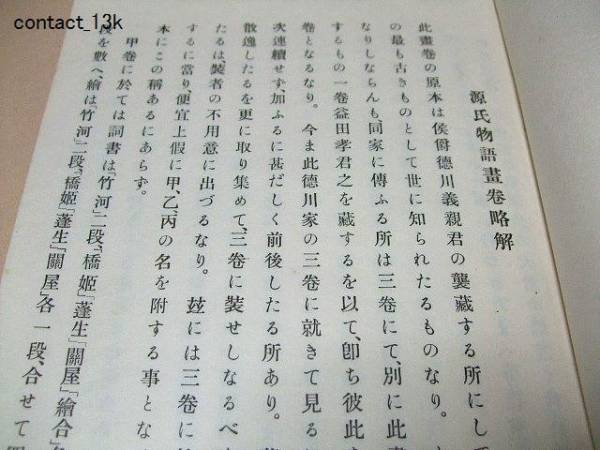 contact_13k
源氏物語畫卷略解
此畫卷の原本は侯爵德川義親君の襲藏する所にして
の最も古きものとして世に知られたるものなり。
なりしならんも、同家に傳ふる所は三卷にて、別に此畫
するもの一卷益田孝君之を藏するを以て、卽ち彼此
卷となるなり。今ま此德川家の三卷に就きて見る
次連續せず、加ふるに甚だしく前後したる所あり。
散逸したるを更に取り集めて、三卷に裝せしなるべ
たるは、裝者の不用意に出づるなり。玆には三卷に
するに當り、便宜上假に甲、乙、丙の名を附する事とな
本にこの稱あるにあらず。
甲卷に於ては詞書は『竹河』二段、『橋姬』『蓬生』『關屋』『繪合』
段を數へ、繪は『竹河』二段、『橋姬』『蓬生』『關屋』各一段、合せて